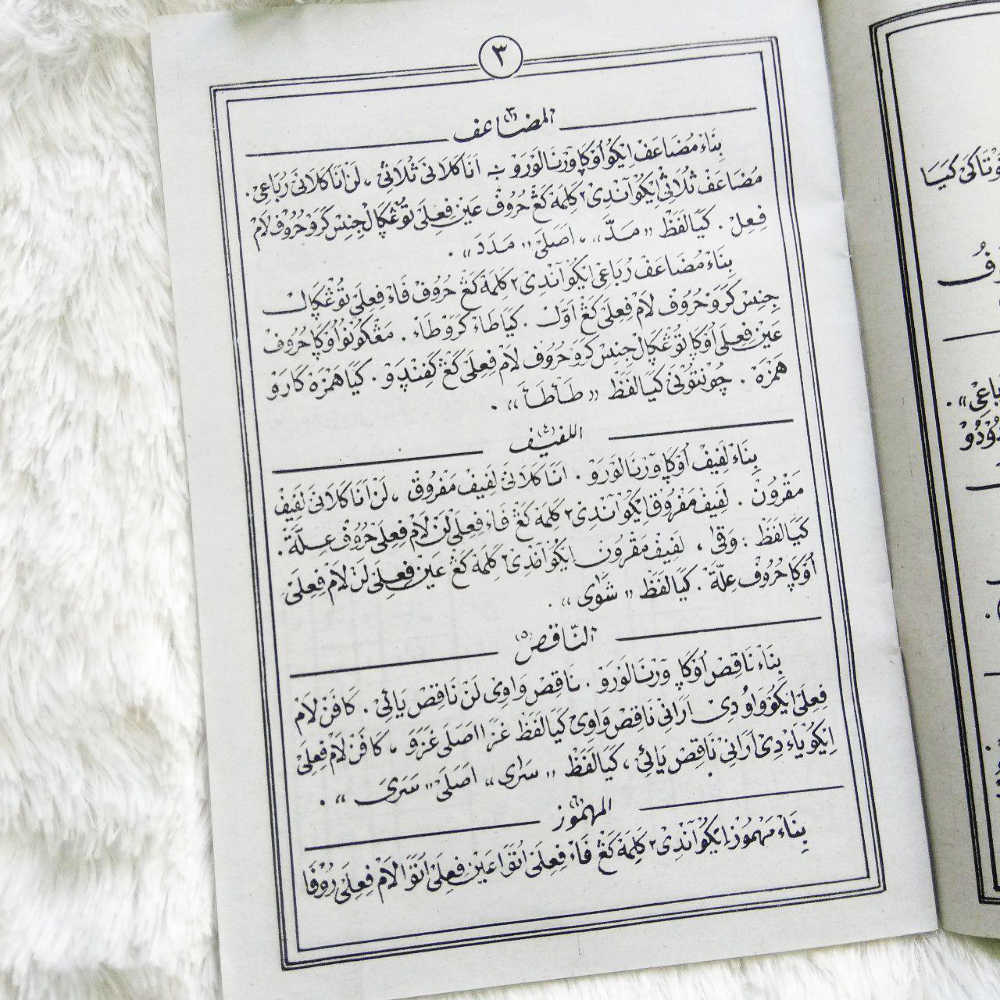 ٣
المضاعف (٣)
بِنَاءْ مُضَاعَفْ اِيكُوْ اُوْكَا وَرْنَا لَوْرَوْ ؞ اَنَا كَلَانَ ثُلَاثِيْ ، لَنْ اَنَا كَلَانَ رُبَاعِيْ .
مُضَاعَفْ ثُلَاثِيْ اِيكُوْ اَنْدِيْ ٢ كَلِمَةْ كَڠْ حُرُوْفْ عَيْنْ فِعِلَيْ تُوْڠْكَالْ جِنِسْ كَرَوْ حُرُوْفْ لَامْ
فِعِلْ . كَيَا لَفَظْ « مَدَّ » ، اَصَلَيْ « مَدَدَ » .
بِنَاءْ مُضَاعَفْ رُبَاعِيْ اِيكُوْ اَنْدِيْ ٢ كَلِمَةْ كَڠْ حُرُوْفْ فَاءْ فِعِلَيْ تُوْڠْكَالْ
جِنِسْ كَرَوْ حُرُوْفْ لَامْ فِعِلَيْ كَڠْ اَوَّلْ . كَيَا طَاءْ كَرَوْ طَاءْ . مَڠْكُوْنَوْ اُوْكَا حُرُوْفْ
عَيْنْ فِعِلَيْ اُوْكَا تُوْڠْكَالْ جِنِسْ كَرَوْ حُرُوْفْ لَامْ فِعِلَيْ كَڠْ كَفِنْدَوْ . كَيَا هَمْزَةْ كَارَوْ
هَمْزَةْ . چُوْنْتَوْنَيْ كَيَا لَفَظْ « طَأْطَأَ » .
اللفيف (٤)
بِنَاءْ لَفِيْفْ اُوْكَا وَرْنَا لَوْرَوْ . اَنَا كَلَانَ لَفِيْفْ مَفْرُوْقْ ، لَنْ اَنَا كَلَانَ لَفِيْفْ
مَقْرُوْنْ . لَفِيْفْ مَفْرُوْقْ اِيكُوْ اَنْدِيْ ٢ كَلِمَةْ كَڠْ فَاءْ فِعِلَيْ لَنْ لَامْ فِعِلَيْ حُرُوْفْ عِلَّةْ .
كَيَا لَفَظْ : وَقَى ، لَفِيْفْ مَقْرُوْنْ اِيكُوْ اَنْدِيْ ٢ كَلِمَةْ كَڠْ عَيْنْ فِعِلَيْ لَنْ لَامْ فِعِلَيْ
اُوْكَا حُرُوْفْ عِلَّةْ . كَيَا لَفَظْ « شَوَى » .
النّاقص (٥)
بِنَاءْ نَاقِصْ اُوْكَا وَرْنَا لَوْرَوْ . نَاقِصْ وَاوِيْ لَنْ نَاقِصْ يَائِيْ . كَافَنْ لَامْ
فِعِلَيْ اِيكُوْ وَاوُ دِيْ اَرَانِيْ نَاقِصْ وَاوِيْ كَيَا لَفَظْ غَزَا اَصَلَيْ غَزَوَ ، كَافَنْ لَامْ فِعِلَيْ
اِيكُوْ يَاءْ دِيْ اَرَانِيْ نَاقِصْ يَائِيْ ، كَيَا لَفَظْ « سَرَى » اَصَلَيْ « سَرَيَ » .
المهموز (٦)
بِنَاءْ مَهْمُوْزْ اِيكُوْ اَنْدِيْ ٢ كَلِمَةْ كَڠْ فَاءْ فِعِلَيْ اُتَوَا عَيْنْ فِعِلَيْ اُتَوَا لَامْ فِعِلَيْ رُوْفَا